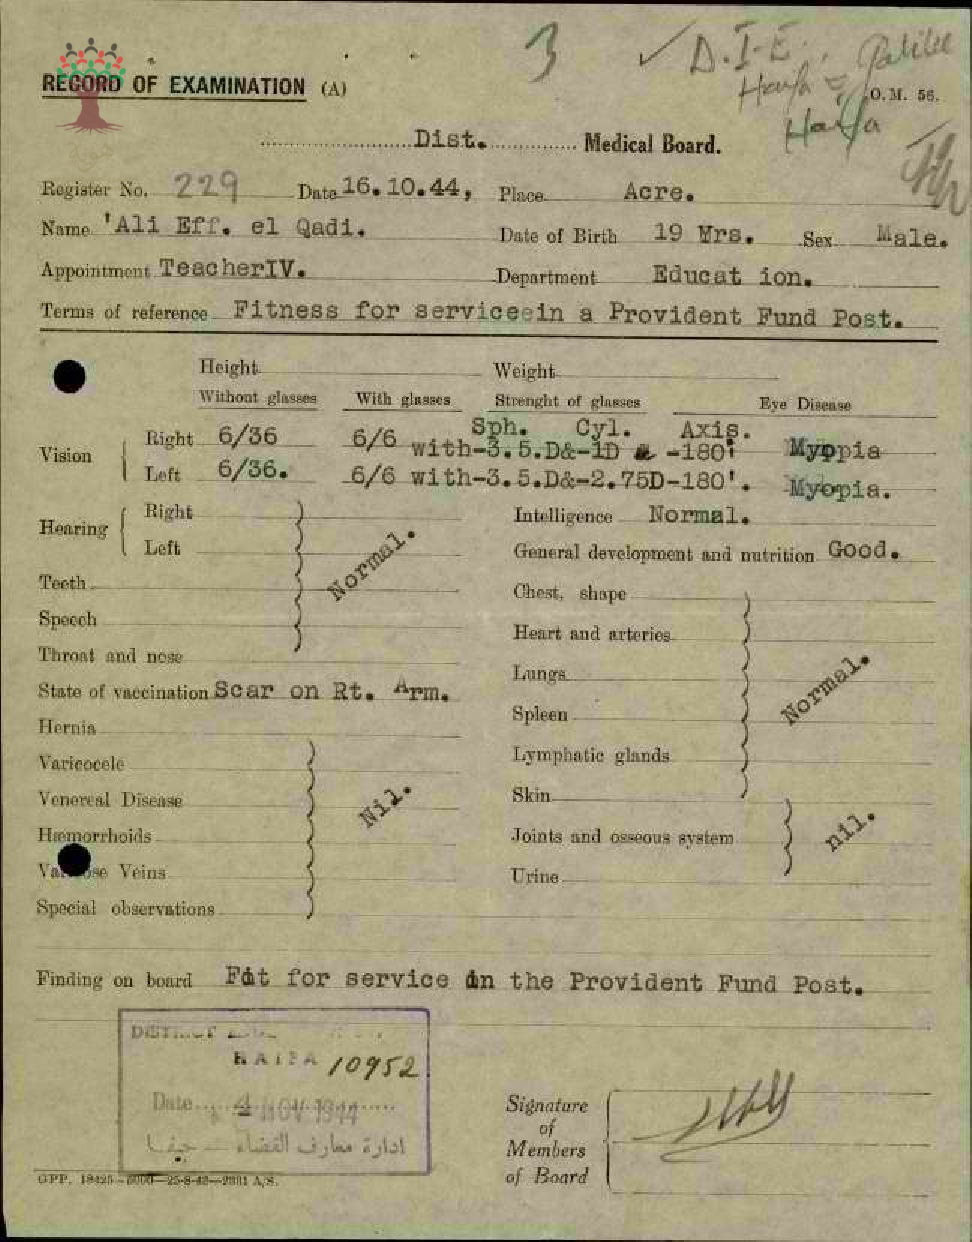 3 ✓ D.I.E. Galilee
Haifa
RECORD OF EXAMINATION (A) O.M. 56.
Haifa
Dist. Medical Board.
Register No. 229 Date 16.10.44, Place Acre.
Name 'Ali Eff. el Qadi. Date of Birth 19 Yrs. Sex Male.
Appointment TeacherIV. Department Educat ion.
Terms of reference Fitness for serviceein a Provident Fund Post.
Height Weight
Without glasses With glasses Strenght of glasses Eye Disease
Sph. Cyl. Axis.
Vision Right 6/36 6/6 with-3.5.D&-1D -180' Myopia
Left 6/36. 6/6 with-3.5.D&-2.75D-180'. Myopia.
Hearing Right Normal. Intelligence Normal.
Left General development and nutrition Good.
Teeth Chest, shape Normal.
Speech Heart and arteries
Throat and nose Lungs
State of vaccination Scar on Rt. Arm.
Hernia Spleen
Varicocele Nil. Lymphatic glands
Venereal Disease Skin
Hæmorrhoids Joints and osseous system nil.
Varicose Veins Urine
Special observations
Finding on board Fit for service in the Provident Fund Post.
DISTRICT
HAIFA 10952
Date 4 NOV 1944
ادارة معارف القضاء — حيفا
Signature
of
Members
of Board
GPP. 18425—5000—25-8-42—2331 A/S.